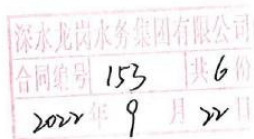 深水龙岗水务集团有限公司
合同编号 153 共6份
2022年9月22日